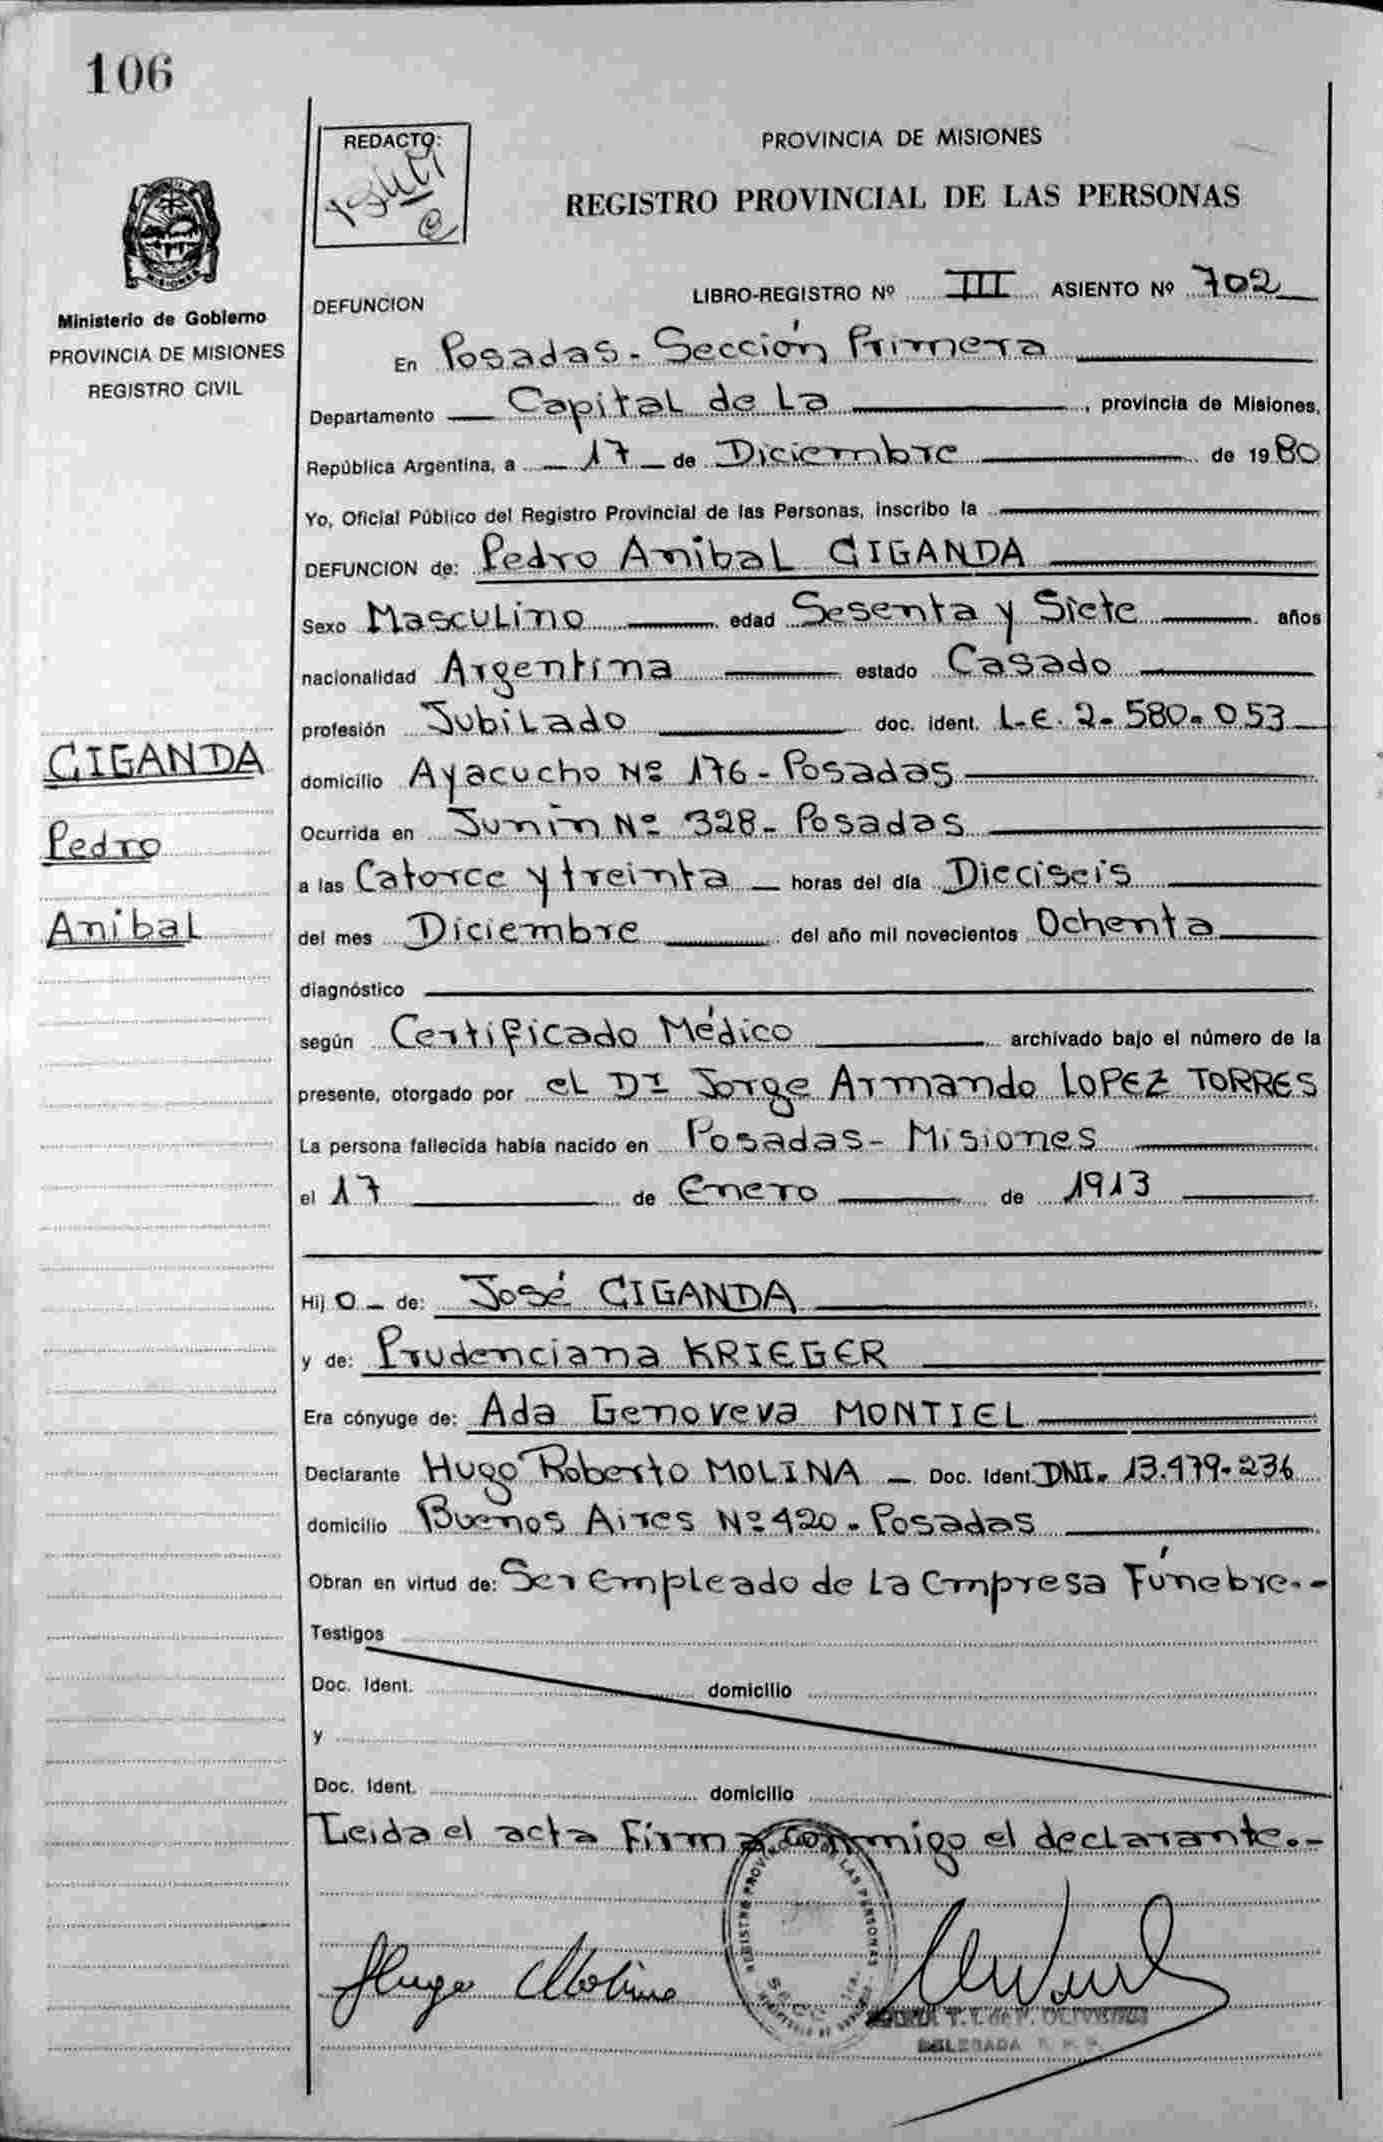 106
REDACTO:
PROVINCIA DE MISIONES
REGISTRO PROVINCIAL DE LAS PERSONAS
MISIONES
Ministerio de Gobierno
PROVINCIA DE MISIONES
REGISTRO CIVIL
DEFUNCION LIBRO-REGISTRO Nº III ASIENTO Nº 702
En Posadas - Sección Primera
Departamento Capital de La, provincia de Misiones,
República Argentina, a 17 de Diciembre de 1980
Yo, Oficial Público del Registro Provincial de las Personas, inscribo la
DEFUNCION de: Pedro Anibal CIGANDA
Sexo Masculino edad Sesenta y Siete años
nacionalidad Argentina estado Casado
profesión Jubilado doc. ident. L.E. 2.580.053
domicilio Ayacucho Nº 176 - Posadas
Ocurrida en Junin Nº 328 - Posadas
a las Catorce y treinta horas del día Dieciseis
del mes Diciembre del año mil novecientos Ochenta
diagnóstico
según Certificado Médico archivado bajo el número de la
presente, otorgado por el Dr Jorge Armando LOPEZ TORRES
La persona fallecida había nacido en Posadas - Misiones
el 17 de Enero de 1913
CIGANDA
Pedro
Anibal
Hijo de: José CIGANDA
y de: Prudenciana KRIEGER
Era cónyuge de: Ada Genoveva MONTIEL
Declarante Hugo Roberto MOLINA - Doc. Ident. DNI. 13.479.236
domicilio Buenos Aires Nº 420 - Posadas
Obran en virtud de: Ser empleado de La Empresa Fúnebre.-
Testigos
Doc. Ident. domicilio
y
Doc. Ident. domicilio
Leida el acta Firma conmigo el declarante.-
Hugo Molina
DELEGADA